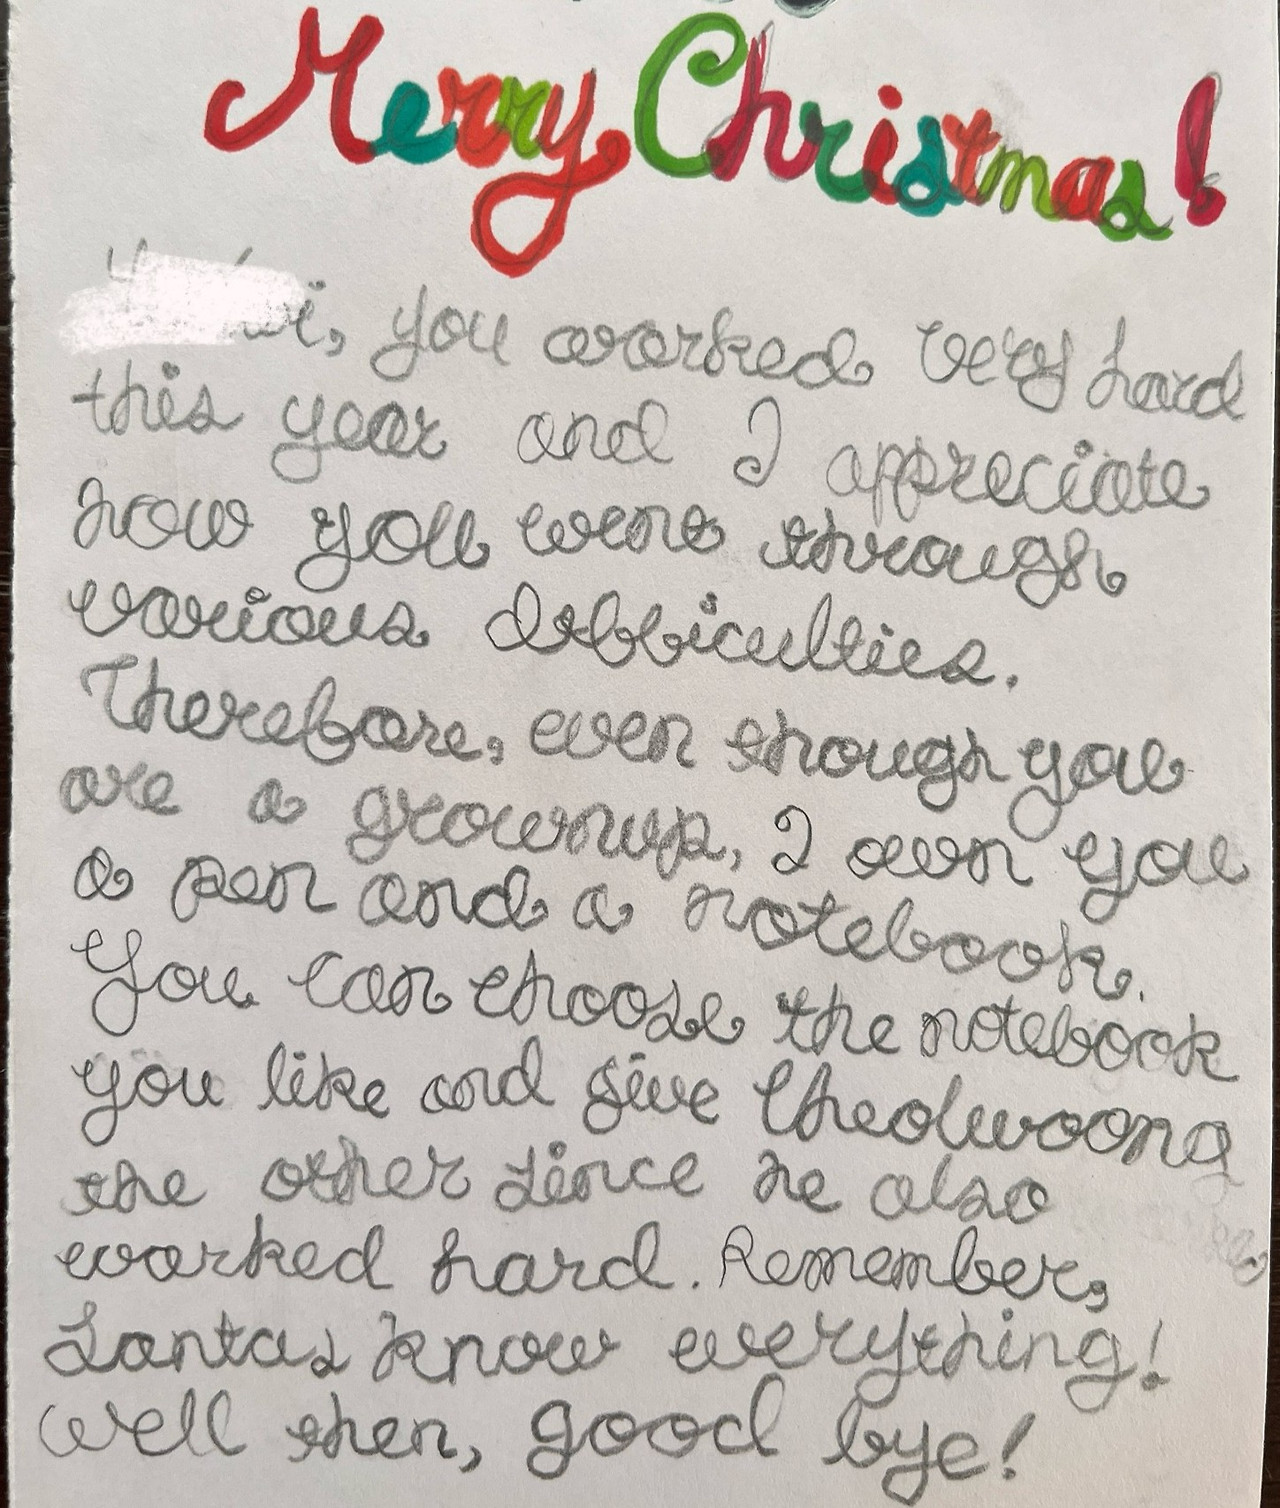 Merry Christmas!
you worked very hard
this year and I appreciate
how you went through
various difficulties.
Therefore, even though you
are a grownup, I own you
a pen and a notebook.
You can choose the notebook
you like and give Cheolwoong
the other since he also
worked hard. Remember,
Santas know everything!
Well then, good bye!